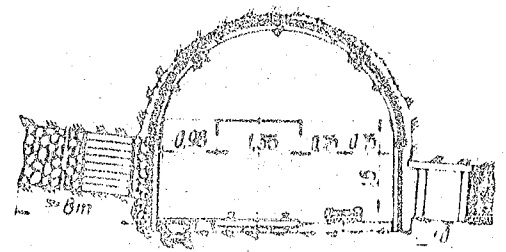 0,98 1,35 0,75 0,75
1,5
8m